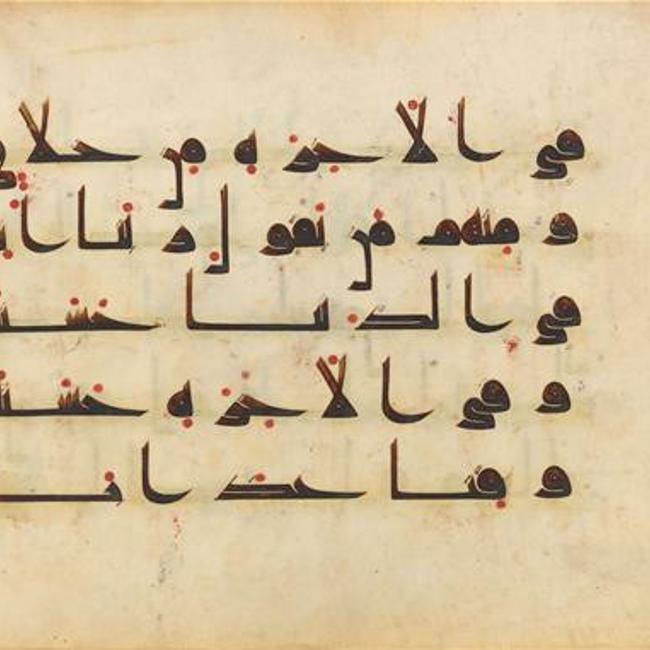 في الاخره من خلاق
ومنهم من يقول ربنا ا
في الدنيا حسنـ
وفي الاخره حسنـ
وقنا عذاب